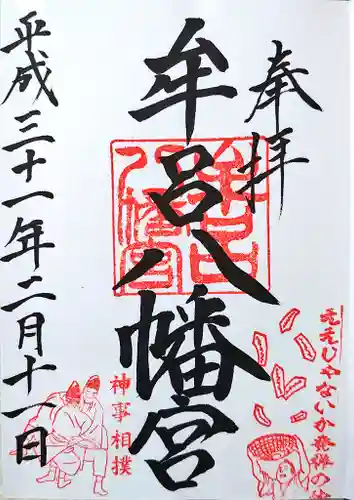 奉拝
牟呂八幡宮
平成三十一年二月十一日
牟呂八幡宮
神事相撲
ええじゃないか発祥の